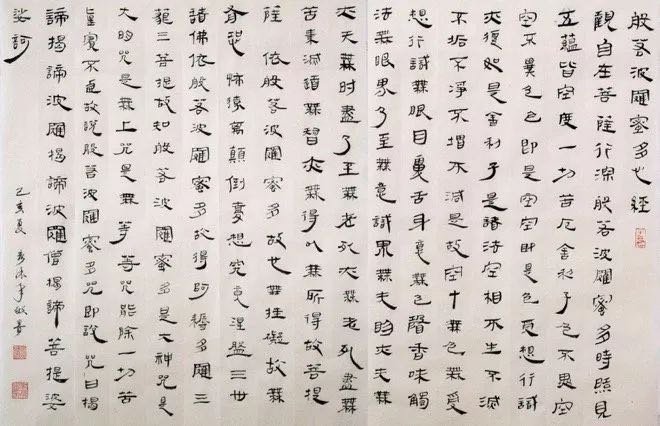 般若波羅蜜多心經
觀自在菩薩行深般若波羅蜜多時照見
五蘊皆空度一切苦厄舍利子色不異空
空不異色色即是空空即是色受想行識
亦復如是舍利子是諸法空相不生不滅
不垢不淨不增不減是故空中無色無受
想行識無眼耳鼻舌身意無色聲香味觸
法無眼界乃至無意識界無无明亦无
亦无無明盡乃至無老死亦無老死盡無
苦集滅道無智亦無得以無所得故菩提
薩依般若波羅蜜多故心無挂礙故無
有恐怖遠離顛倒夢想究竟涅盤三世
諸佛依般若波羅蜜多故得阿耨多羅三
藐三菩提故知般若波羅蜜多是大神咒是
大明咒是無上咒是無等等咒能除一切苦
真實不虛故說般若波羅蜜多咒即說咒曰揭
諦揭諦波羅揭諦波羅僧揭諦菩提婆
娑訶
乙亥夏